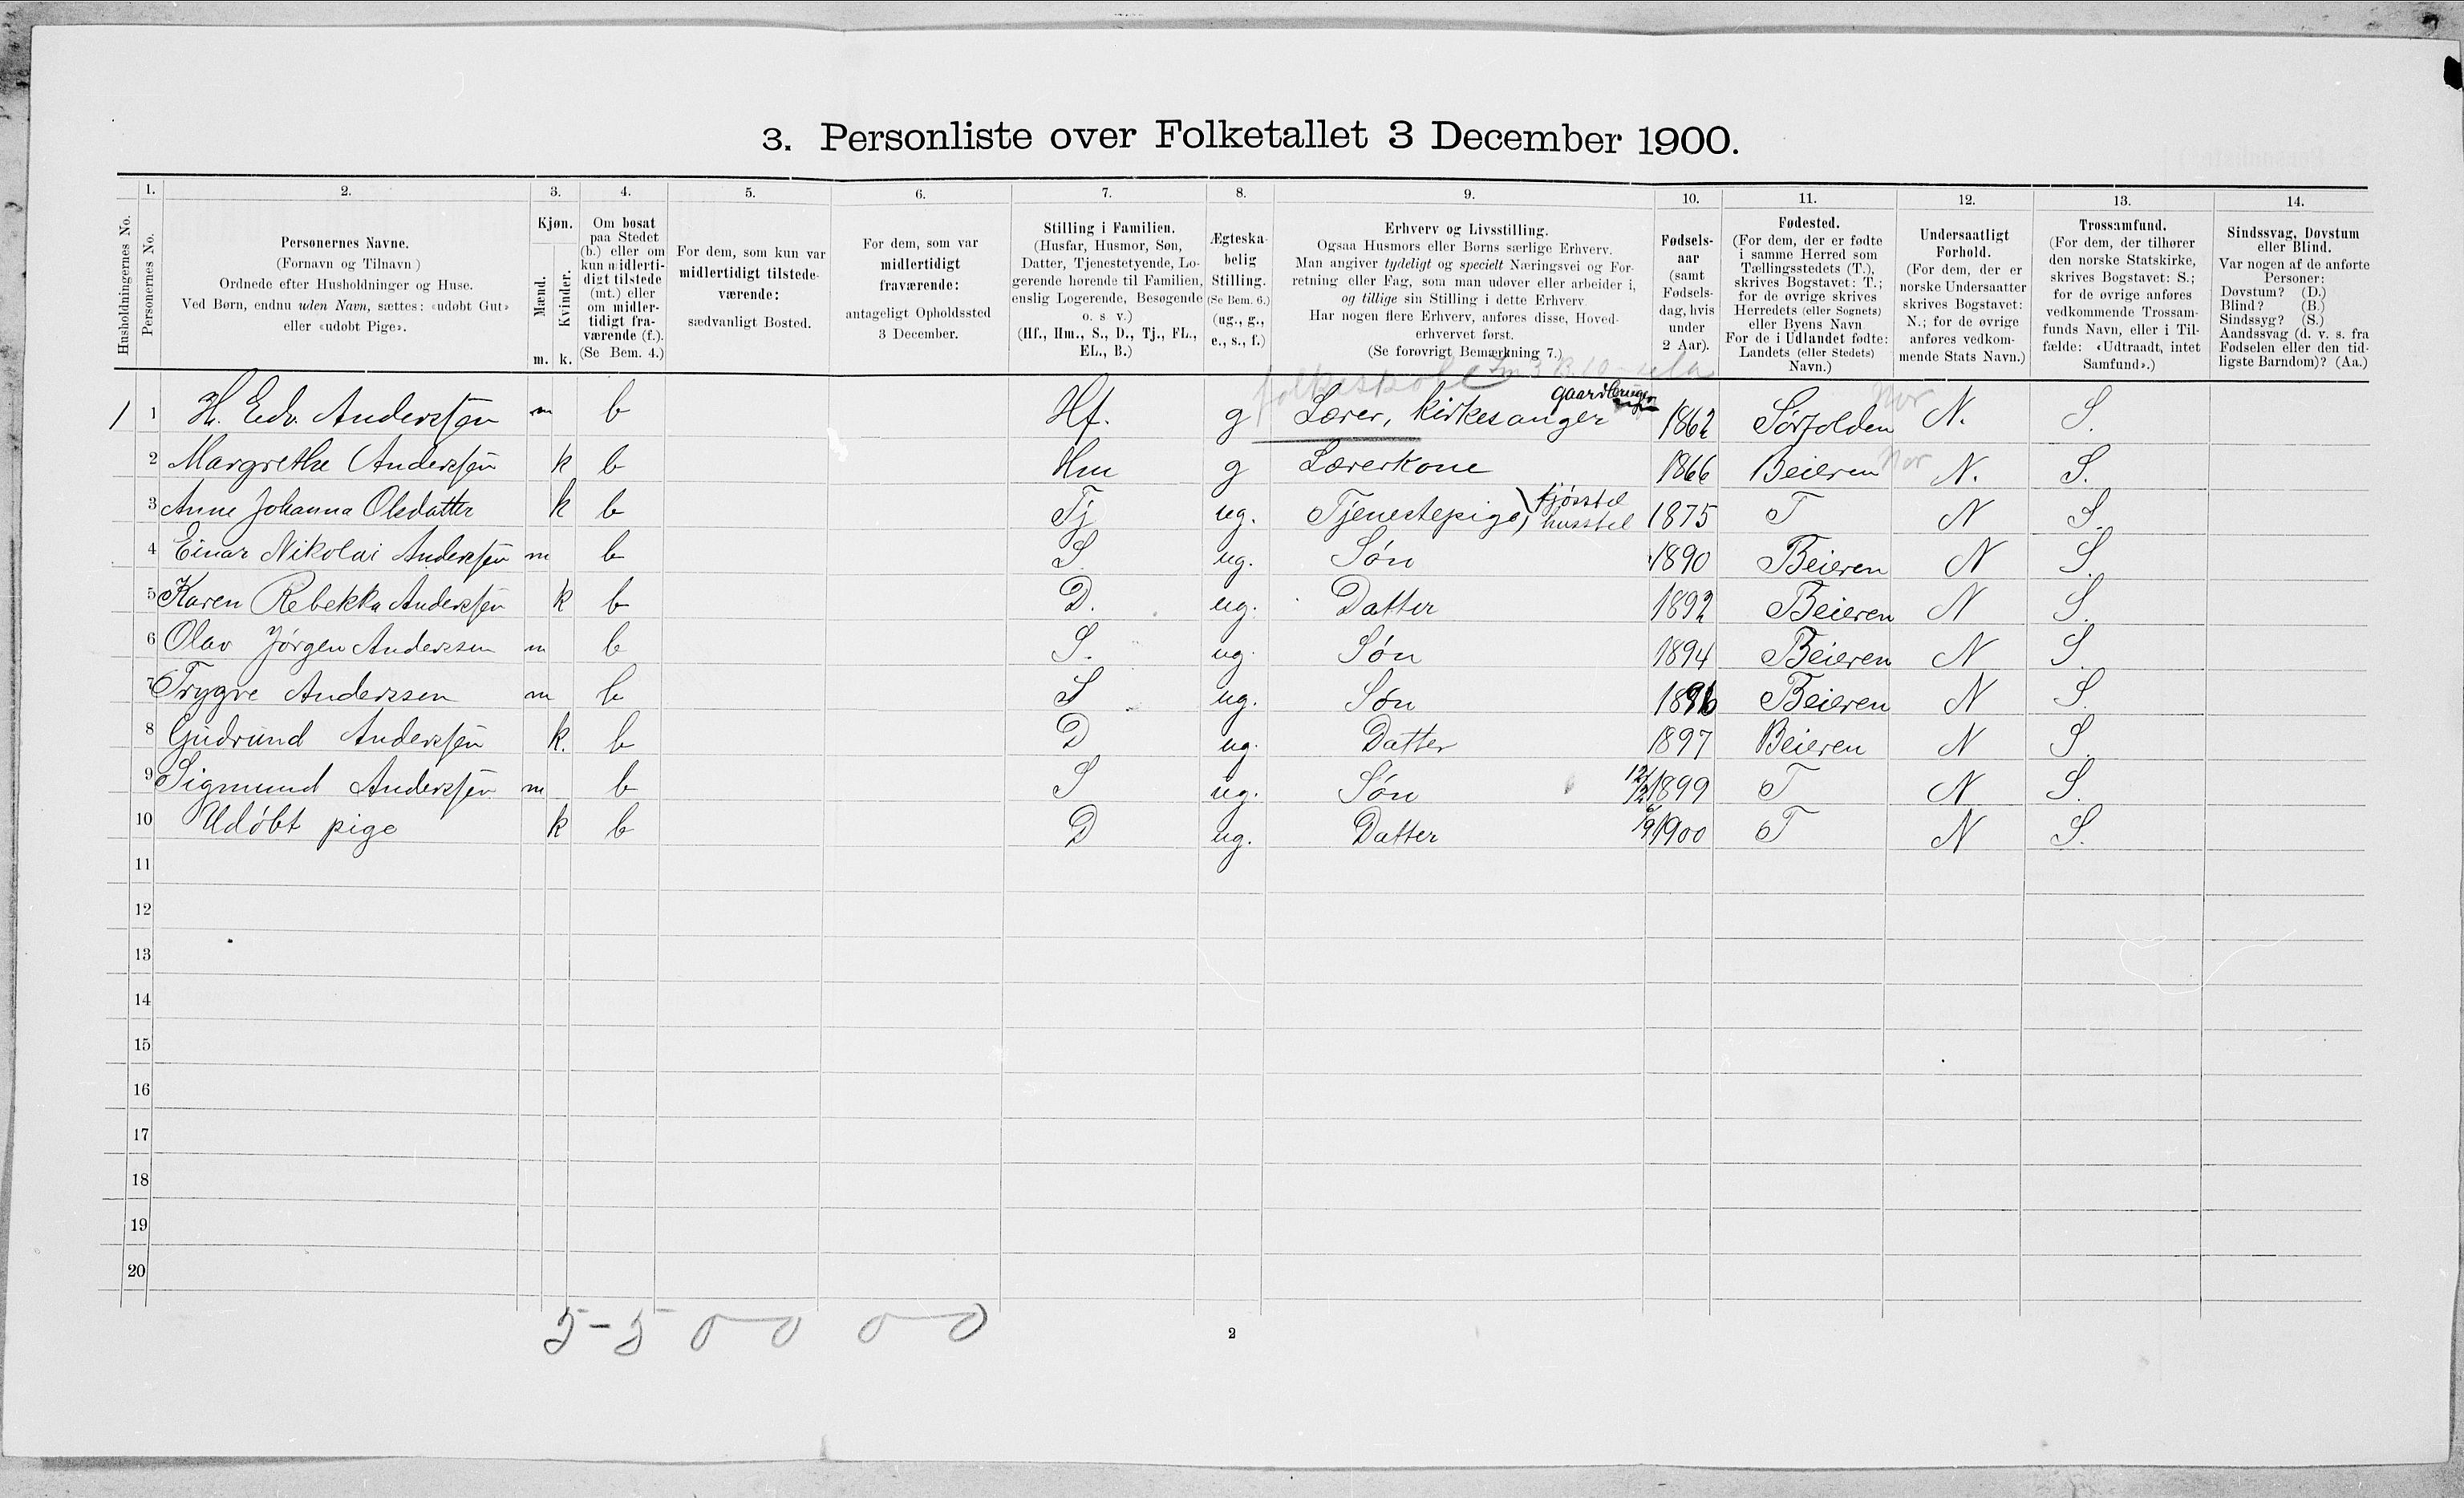 3. Personliste over Folketallet 3 December 1900.
1. 2. 3. 4. 5. 6. 7. 8. 9. 10. 11. 12. 13. 14.
Husholdningernes No.
Personernes No.
Personernes Navne.
(Fornavn og Tilnavn)
Ordnede efter Husholdninger og Huse.
Ved Børn, endnu uden Navn, sættes: «udøbt Gut»
eller «udøbt Pige».
Kjøn.
Mænd.
Kvinder.
m. k.
Om bosat
paa Stedet
(b.) eller om
kun midlerti-
digt tilstede
(mt.) eller
om midler-
tidigt fra-
værende (f.).
(Se Bem. 4.)
For dem, som kun var
midlertidigt tilstede-
værende:
sædvanligt Bosted.
For dem, som var
midlertidigt
fraværende:
antageligt Opholdssted
3 December.
Stilling i Familien.
(Husfar, Husmor, Søn,
Datter, Tjenestetyende, Lo-
gerende hørende til Familien,
enslig Logerende, Besøgende
o. s v.)
(Hf., Hm., S., D., Tj., FL.,
EL., B.)
Ægteska-
belig
Stilling.
(Se Bem. 6.)
(ug., g.,
e., s., f.)
Erhverv og Livsstilling.
Ogsaa Husmors eller Børns særlige Erhverv.
Man angiver tydeligt og specielt Næringsvei og For-
retning eller Fag, som man udøver eller arbeider i,
og tillige sin Stilling i dette Erhverv.
Har nogen flere Erhverv, anføres disse, Hoved-
erhvervet først.
(Se forøvrigt Bemærkning 7.)
Fødsels-
aar
(samt
Fødsels-
dag, hvis
under
2 Aar).
Fødested.
(For dem, der er fødte
i samme Herred som
Tællingsstedets (T.),
skrives Bogstavet: T.;
for de øvrige skrives
Herredets (eller Sognets)
eller Byens Navn.
For de i Udlandet fødte:
Landets (eller Stedets)
Navn.)
Undersaatligt
Forhold.
(For dem, der er
norske Undersaatter
skrives Bogstavet:
N.; for de øvrige
anføres vedkom-
mende Stats Navn.)
Trossamfund.
(For dem, der tilhører
den norske Statskirke,
skrives Bogstavet: S.;
for de øvrige anføres
vedkommende Trossam-
funds Navn, eller i Til-
fælde: «Udtraadt, intet
Samfund».)
Sindssvag, Døvstum
eller Blind.
Var nogen af de anførte
Personer:
Døvstum? (D.)
Blind? (B.)
Sindssyg? (S.)
Aandssvag (d. v. s. fra
Fødselen eller den tid-
ligste Barndom)? (Aa.)
folkeskole
gaardbruger
1 1 H. Edv. Anderssen m b Hf. g Lærer, kirkesanger 1862 Sørfolden Nor N. S.
2 Margrethe Anderssen k b Hm g Lærerkone 1866 Beieren Nor N. S.
3 Anne Johanna Olsdatter k b Tj ug. Tjenestepige, fjøsstel husstel 1875 T N S.
4 Einar Nikolai Anderssen m b S. ug. Søn 1890 Beieren N S.
5 Karen Rebekka Anderssen k b D. ug. Datter 1892 Beieren N S.
6 Olav Jørgen Anderssen m b S. ug. Søn 1894 Beieren N S.
7 Trygve Anderssen m b S ug. Søn 1896 Beieren N S.
8 Gudrund Anderssen k. b D ug. Datter 1897 Beieren N S.
9 Sigmund Anderssen m b S ug. Søn 12/2 1899 T N S.
10 Udøbt pige k b D ug. Datter 6/9 1900 T N S.
11
12
13
14
15
16
17
18
19
20
5-5 0-0 0-0
2